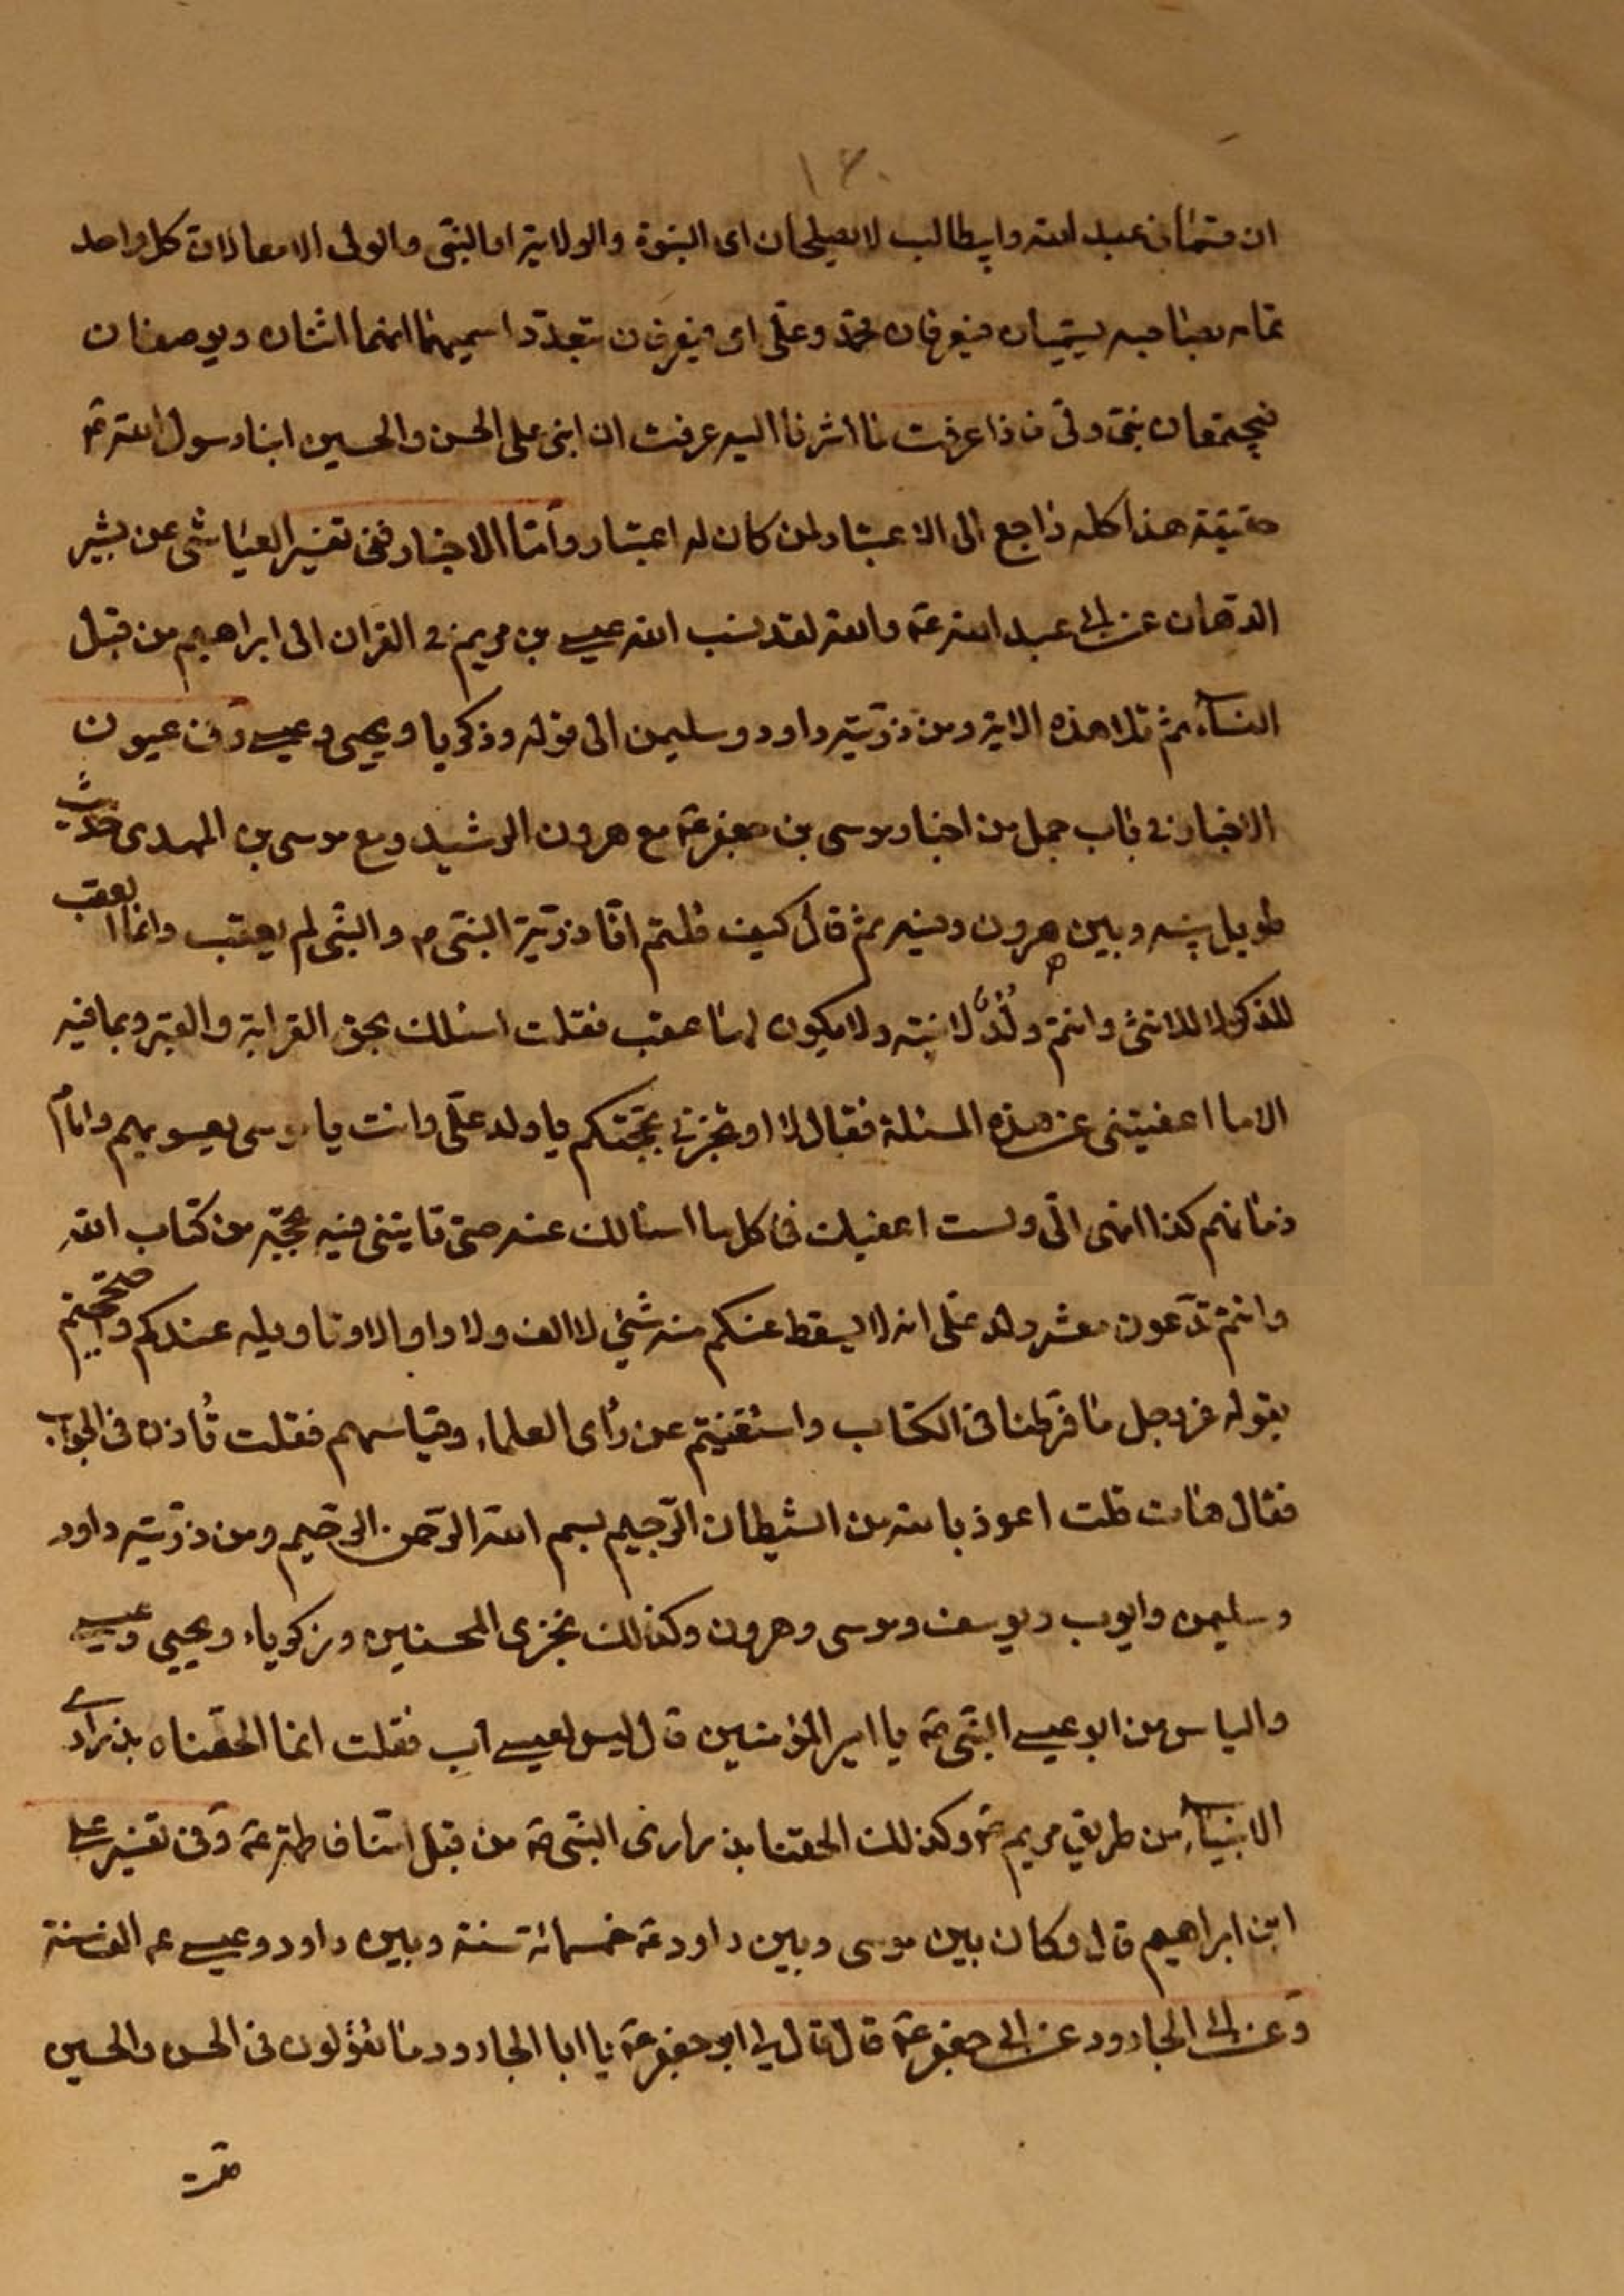 ١٢٠
ان قسما في عبد الله وابيطالب لا يصلحان اى النبوة والولاية او النبى والولى الا معا لان كل واحد
تمامه بصاحبه يسميان فيعرفان محمد وعلى اى فيعرفان بتعدد اسميهما انهما اثنان ويوصفان
فيجتمعان بنبى وولى فاذا عرفت ما اشرنا اليه عرفت ان ابنى على الحسن والحسين ابنا رسول الله ص
حقيقة هذا كله راجع الى الاعتبار لمن كان له اعتبار واما الاخبار ففى تفسير العياشى عن بشير
الدهان عن ابى عبد الله ع والله لقد نسب الله عيسى بن مريم فى القران الى ابراهيم من قبل
النساء ثم تلا هذه الاية ومن ذريته داود وسليمن الى قوله وزكريا ويحيى وعيسى وفى عيون
الاخبار فى باب جمل من اخبار موسى بن جعفر ع مع هرون الرشيد ومع موسى بن المهدى حديث
طويل بينه وبين هرون وفيه ثم قال كيف قلتم انا ذرية النبى ص والنبى لم يعقب وانما العقب
للذكر لا للانثى وانتم ولد لابنته ولا يكون لها عقب فقلت اسئلك بحق القرابة والقبر وبما فيه
الا ما اعفيتنى عن هذه المسئلة فقال لا او تخبرنى بحجتكم يا ولد على وانت يا موسى يعسوبهم وامام
زمانهم كذا انهى الى ولست اعفيك فى كل ما اسالك عنه حتى تاتينى فيه بحجة من كتاب الله
وانتم تدعون معشر ولد على انه لا يسقط عنكم منه شئ لا الف ولا واو الا وتاويله عندكم واحتججتم
بقوله عز وجل ما فرطنا فى الكتاب واستغنيتم عن راى العلماء وقياسهم فقلت تاذن فى الجواب
فقال هات قلت اعوذ بالله من الشيطان الرجيم بسم الله الرحمن الرحيم ومن ذريته داود
وسليمن وايوب ويوسف وموسى وهرون وكذلك نجزى المحسنين وزكرياء ويحيى وعيسى
والياس من ابو عيسى النبى ص يا امير المؤمنين قال ليس لعيسى اب فقلت انما الحقناه بذرارى
الانبياء من طريق مريم ع وكذلك الحقنا بذرارى النبى ص من قبل امنا فاطمة ع وفى تفسير على
ابن ابراهيم قال وكان بين موسى وبين داود ع خمسمائة سنة وبين داود وعيسى ع الف سنة
وعن ابى الجارود عن ابى جعفر ع قال قال لى ابو جعفر ع يا ابا الجارود ما تقولون فى الحسن والحسين
قلت